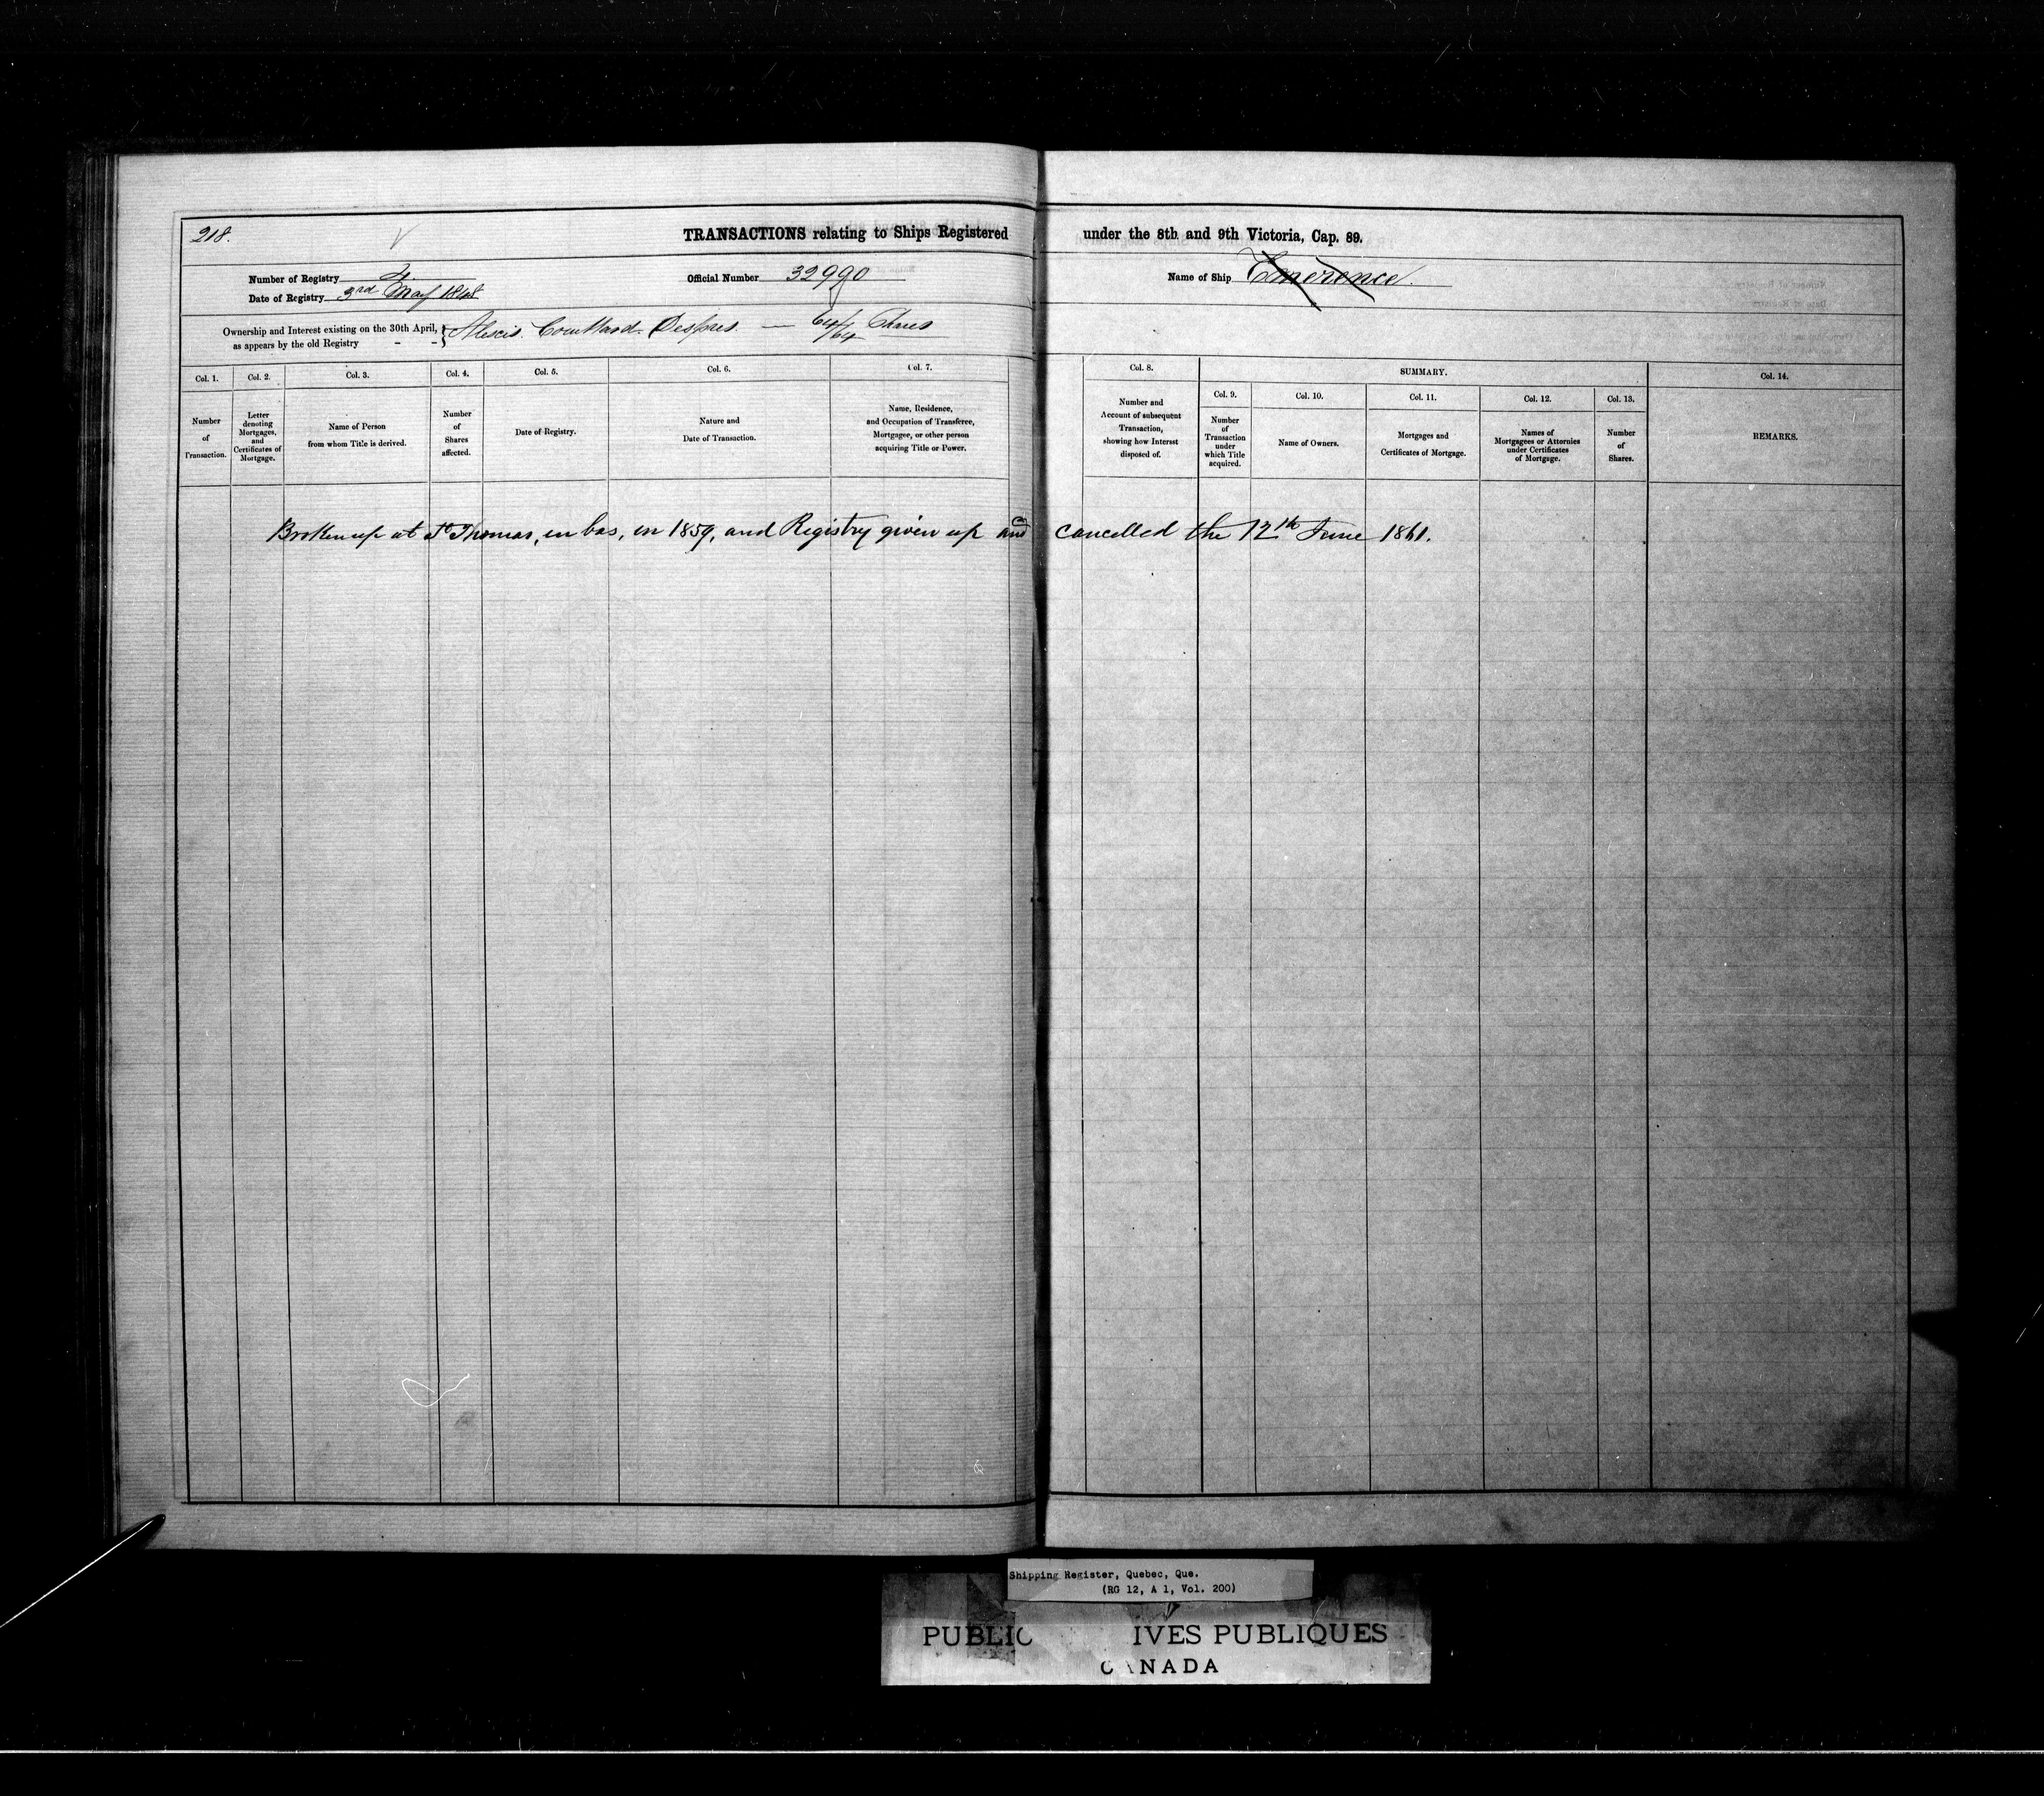 218.
TRANSACTIONS relating to Ships Registered under the 8th and 9th Victoria, Cap. 89.
Number of Registry 4.
Official Number 32990
Name of Ship Emerence.
Date of Registry 3rd May 1848
Ownership and Interest existing on the 30th April, as appears by the old Registry - - } Alexis Couillard Despres. — 64/64 Shares
Col. 1.
Number of Transaction.
Col. 2.
Letter denoting Mortgages, and Certificates of Mortgage.
Col. 3.
Name of Person from whom Title is derived.
Col. 4.
Number of Shares affected.
Col. 5.
Date of Registry.
Col. 6.
Nature and Date of Transaction.
Col. 7.
Name, Residence, and Occupation of Transferee, Mortgagee, or other person acquiring Title or Power.
Col. 8.
Number and Account of subsequent Transaction, showing how Interest disposed of.
SUMMARY.
Col. 9.
Number of Transaction under which Title acquired.
Col. 10.
Name of Owners.
Col. 11.
Mortgages and Certificates of Mortgage.
Col. 12.
Names of Mortgagees or Attornies under Certificates of Mortgage.
Col. 13.
Number of Shares.
Col. 14.
REMARKS.
Broken up at St Thomas, en bas, in 1859, and Registry given up and cancelled the 12th June 1861.
Shipping Register, Quebec, Que.
(RG 12, A 1, Vol. 200)
PUBLIC IVES PUBLIQUES
CANADA